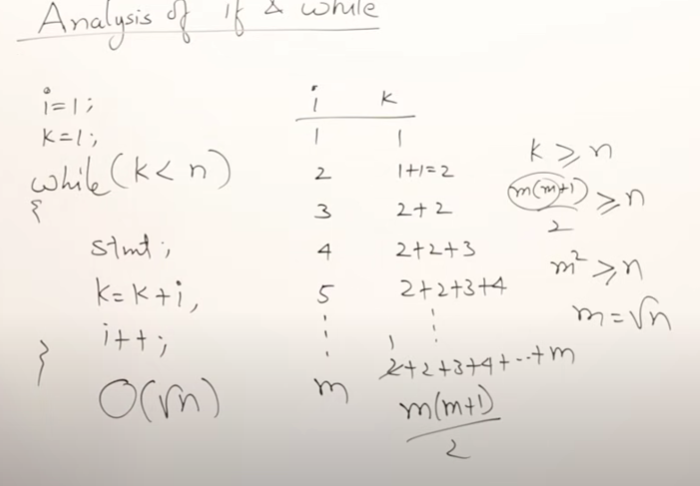 Analysis of if & while
i=1;
k=1;
while(k<n)
{
stmt;
k=k+i,
i++;
}
O(√n)
i k
1 1
2 1+1=2
3 2+2
4 2+2+3
5 2+2+3+4
m 2+2+3+4+--+m
1
m(m+1)
2
k⩾n
m(m+1) ⩾n
2
m²⩾n
m=√n